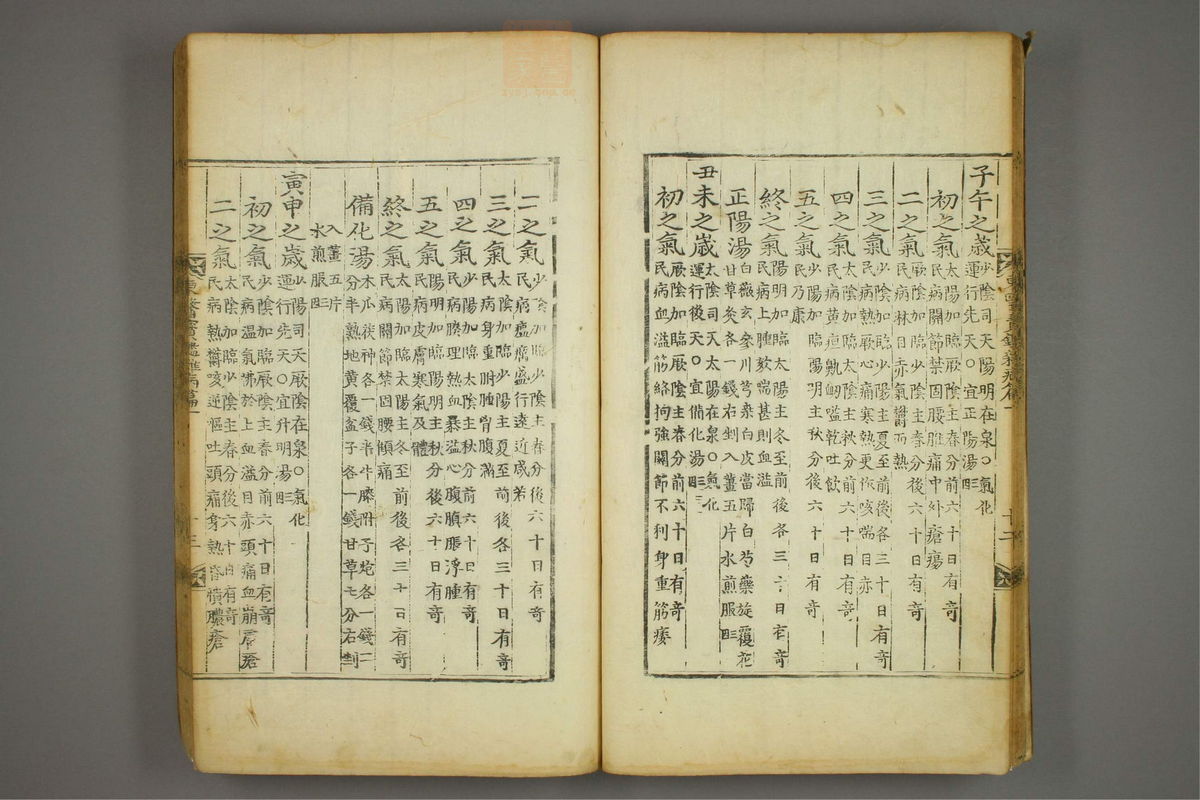 子午之歲 少陰司天陽明在泉○氣化
運行先天○宜正陽湯
初之氣 太陽加臨厥陰主春分前六十日有奇
民病關節禁固腰脽痛中外瘡瘍
二之氣 厥陰加臨少陰主春分後六十日有奇
民病淋目赤氣鬱而熱
三之氣 少陰加臨少陽主夏至前後各三十日有奇
民病熱厥心痛寒熱更作咳喘目赤
四之氣 太陰加臨太陰主秋分前六十日有奇
民病黃疸鼽衄嗌乾吐飮
五之氣 少陽加臨陽明主秋分後六十日有奇
民乃康
終之氣 陽明加臨太陽主冬至前後各三十日有奇
民病上腫欬喘甚則血溢
正陽湯 白薇玄參川芎桑白皮當歸白芍藥旋覆花
甘草灸各一錢右剉入薑五片水煎服
丑未之歲 太陰司天太陽在泉○氣化
運行後天○宜備化湯
初之氣 厥陰加臨厥陰主春分前六十日有奇
民病血溢筋絡拘強關節不利身重筋痿
二之氣 少陰加臨少陰主春分後六十日有奇
民病瘟癘盛行遠近咸若
三之氣 太陰加臨少陽主夏至前後各三十日有奇
民病身重胕腫胷腹滿
四之氣 少陽加臨太陰主秋分前六十日有奇
民病腠理熱血暴溢心腹䐜脹浮腫
五之氣 陽明加臨陽明主秋分後六十日有奇
民病皮膚寒氣及體
終之氣 太陽加臨太陽主冬至前後各三十日有奇
民病關節禁固腰脽痛
備化湯 木瓜茯神各一錢半牛膝附子炮各一錢二
分半熟地黃覆盆子各一錢甘草七分右剉
入薑五片
水煎服
寅申之歲 少陽司天厥陰在泉○氣化
運行先天○宜升明湯
初之氣 少陰加臨厥陰主春分前六十日有奇
民病溫氣怫於上血溢目赤頭痛血崩膚瘡
二之氣 太陰加臨少陰主春分後六十日有奇
民病熱鬱咳逆嘔吐頭痛身熱昏憒膿瘡
東醫寶鑑雜病篇一 十二
東醫寶鑑雜病篇一 十三